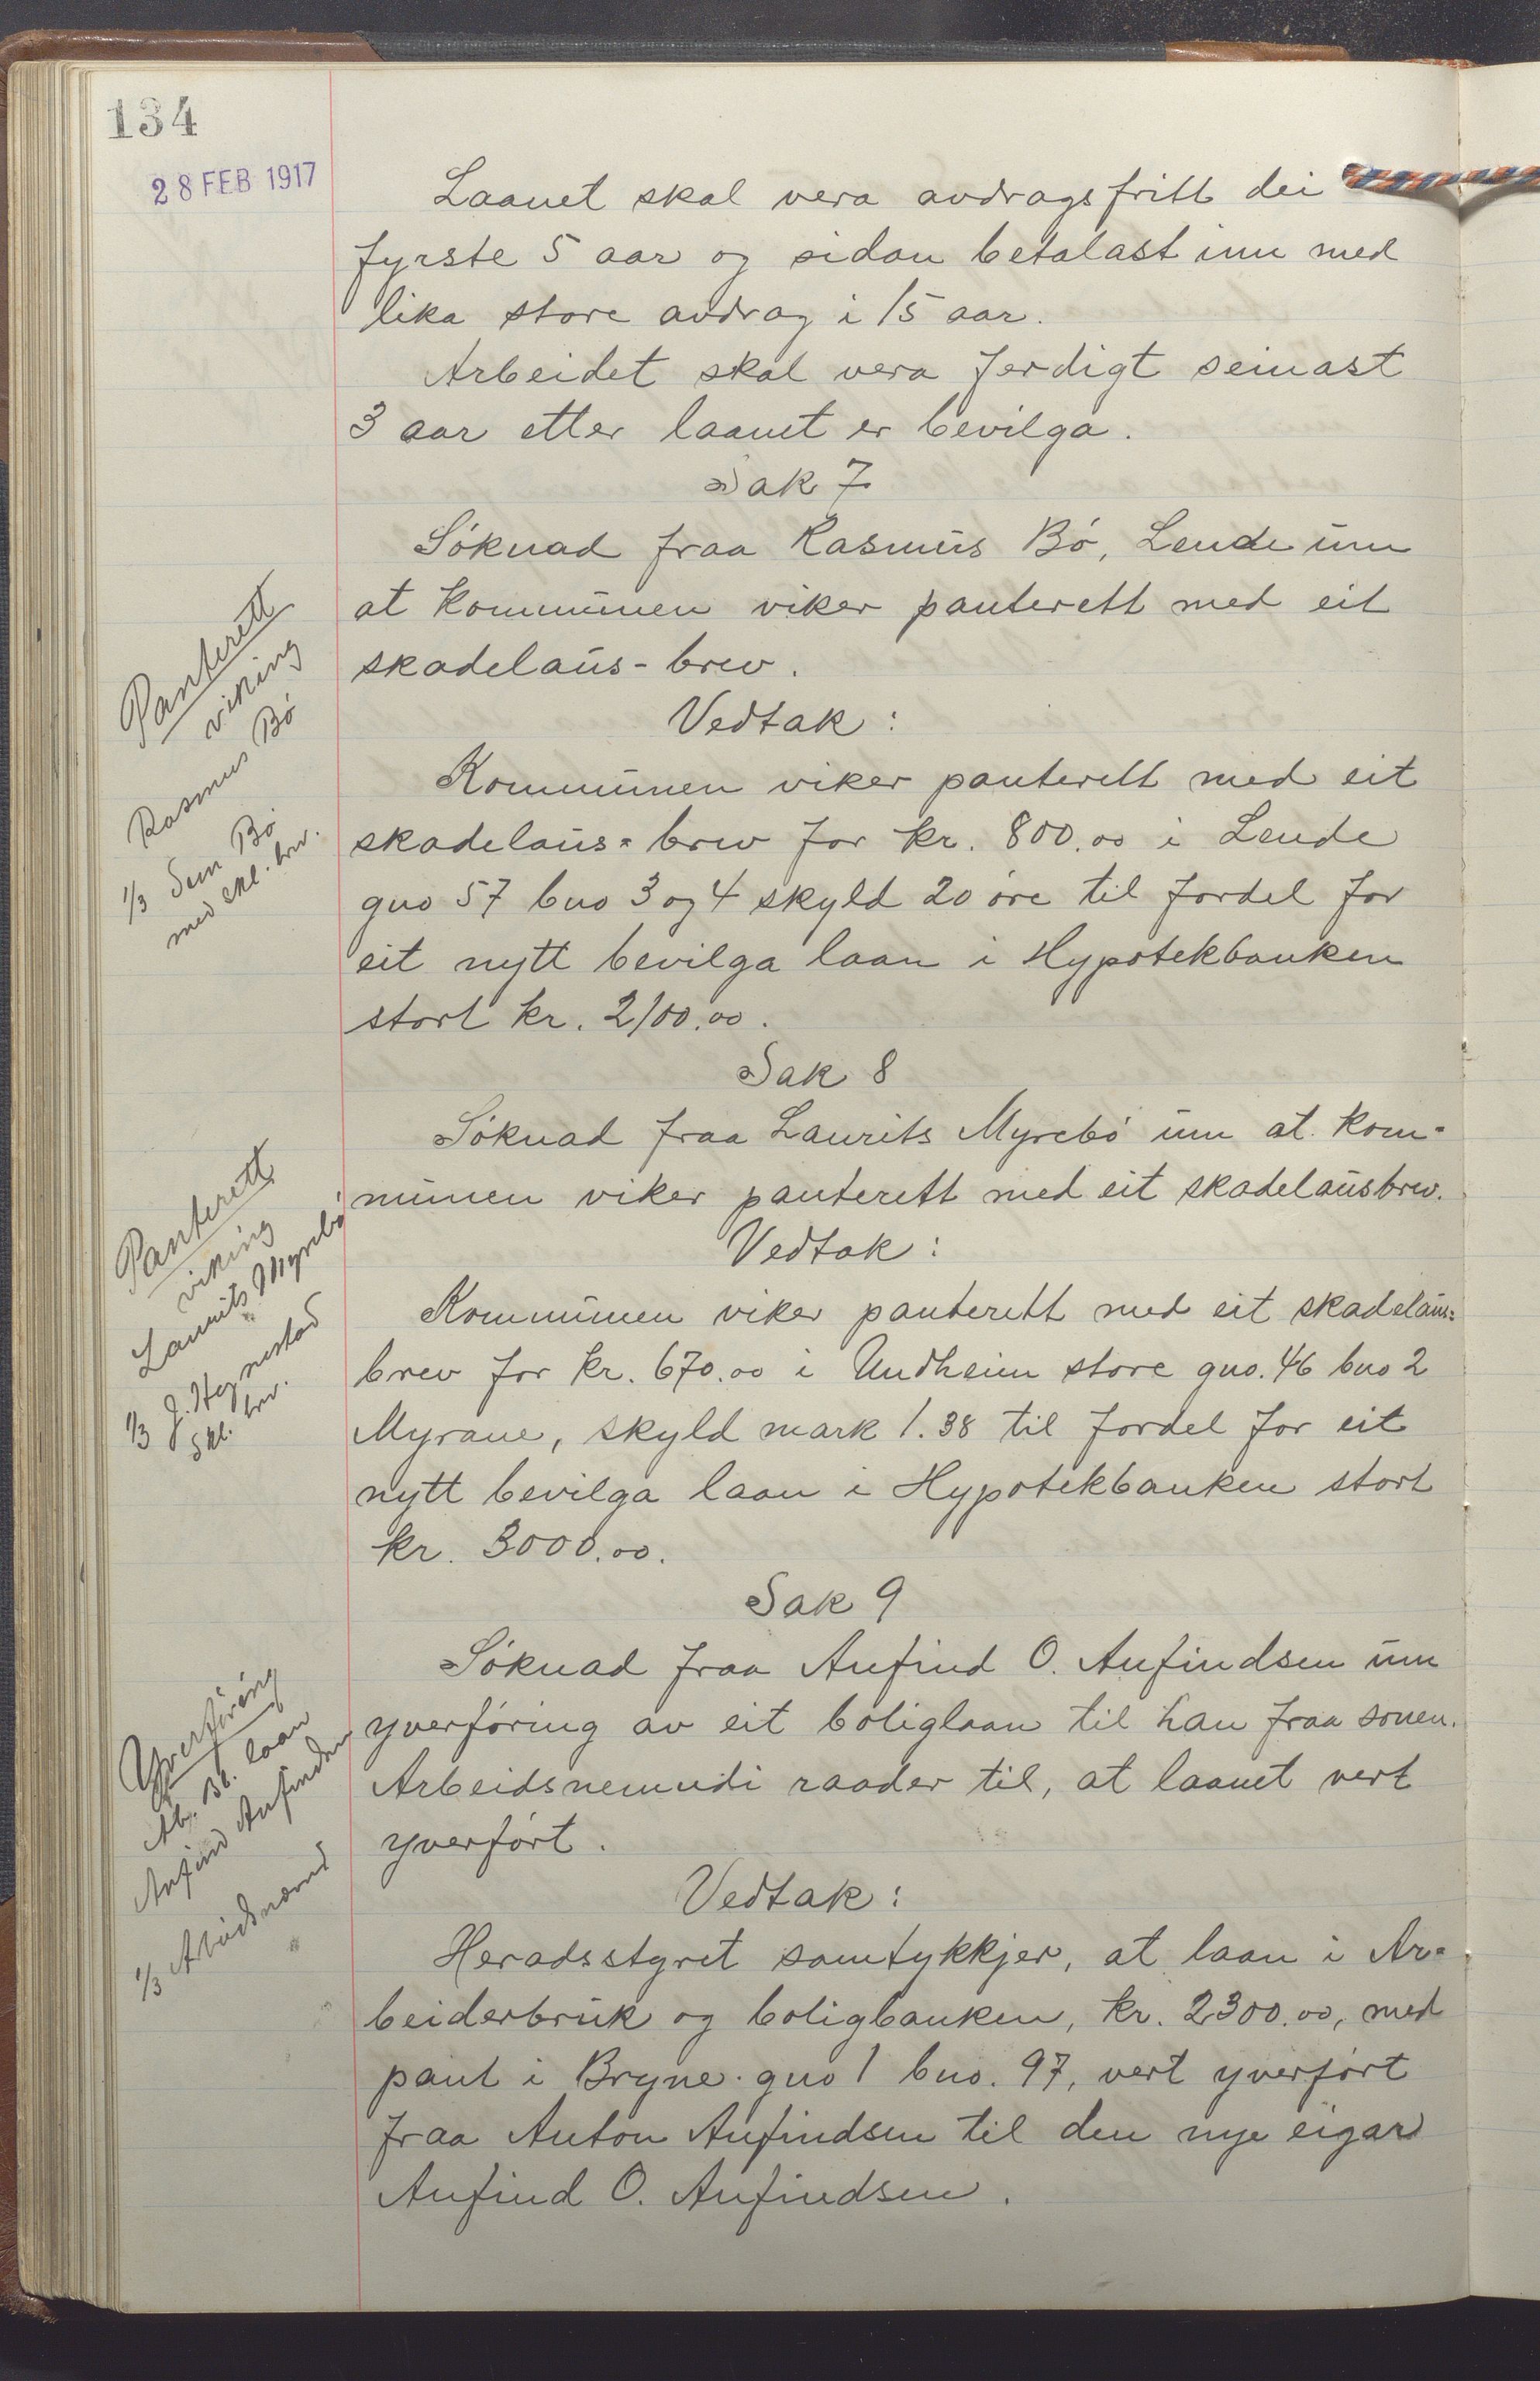 134
28 FEB 1917
Laanet skal vera avdragsfritt dei
fyrste 5 aar og sidan betalast inn med
lika store avdrag i 15 aar.
Arbeidet skal vera ferdigt seinast
3 aar etter laanet er bevilga.
Sak 7
Søknad fraa Rasmus Bø, Lende um
at kommunen viker panterett med eit
skadelaus-brev.
Panterett
viking
Rasmus Bø
1/3 Sem Bø
med skl. brv.
Vedtak:
Kommunen viker panterett med eit
skadelaus-brev for kr. 800.00 i Lende
gno 57 bno 3 og 4 skyld 20 øre til fordel for
eit nytt bevilga laan i Hypotekbanken
stort kr. 2100.00.
Sak 8
Søknad fraa Laurits Myrebø um at kom-
munen viker panterett med eit skadelausbrev.
Panterett
viking
Laurits Myrebø
1/3 J. Hognestad
skl. brv.
Vedtak:
Kommunen viker panterett med eit skadelaus-
brev for kr. 670.00 i Undheim store gno. 46 bno 2
Myrane, skyld mark 1.38 til fordel for eit
nytt bevilga laan i Hypotekbanken stort
kr. 3000.00.
Sak 9
Søknad fraa Anfind O. Anfindsen um
yverføring av eit boliglaan til han fraa sonen.
Arbeidsnemndi raader til, at laanet vert
yverført.
Yverføring
Ab. Bb. laan
Anfind Anfindsen
1/3 Arbeidsnemnd
Vedtak:
Heradsstyret samtykkjer, at laan i Ar-
beiderbruk og boligbanken, kr. 2300.00, med
pant i Bryne gno 1 bno. 97, vert yverført
fraa Anton Anfindsen til den nye eigar
Anfind O. Anfindsen.